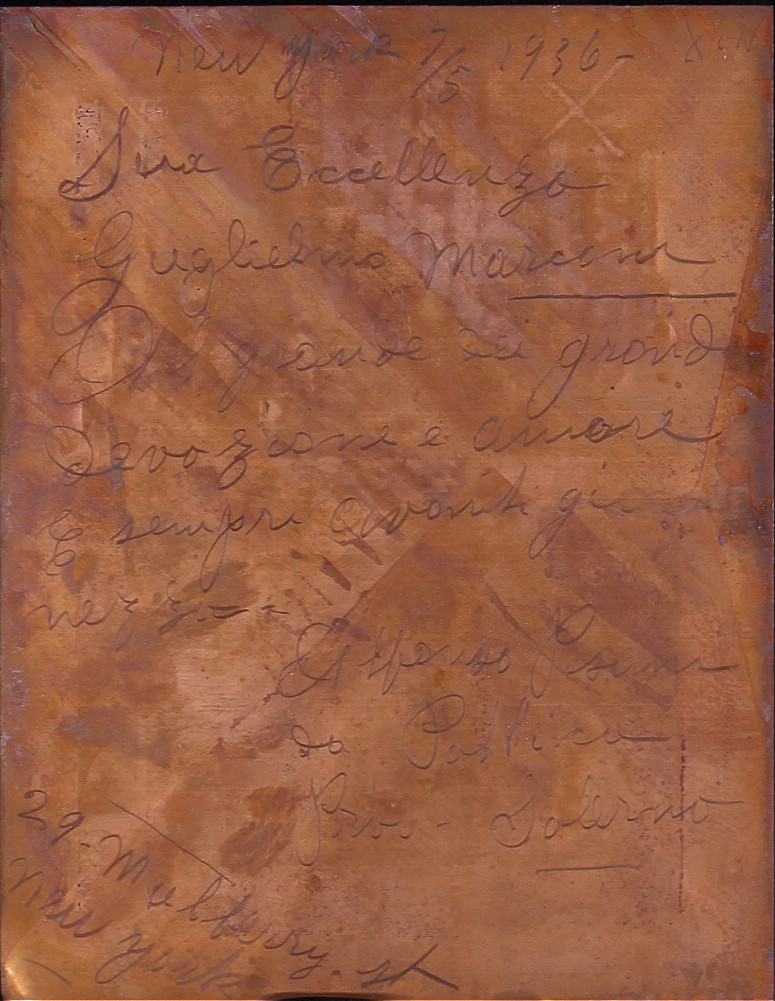 New York 7/5 1936-
Sua Eccellenza
Guglielmo Marconi
Al grande dei grandi
devozione e amore
E sempre avanti
Alfonso
da
Prov. Salerno
29 Mulberry. St
New York